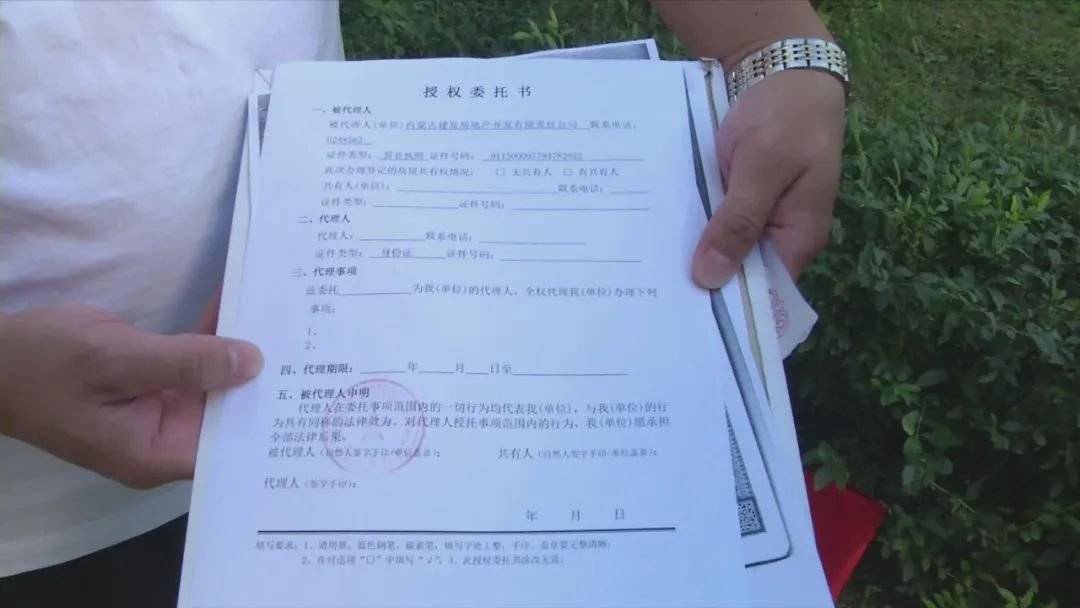 授权委托书
一、被代理人
被代理人(单位)内蒙古建发房地产开发有限责任公司 联系电话:
6248562
证件类型: 营业执照 证件号码: 911509007794782882
此次办理登记的房屋共有权情况: □ 无共有人 □ 有共有人
共有人(单位): 联系电话:
证件类型: 证件号码:
二、代理人
代理人: 联系电话:
证件类型: 身份证 证件号码:
三、代理事项
兹委托 为我(单位)的代理人,全权代理我(单位)办理下列
事项:
1、
2、
四、代理期限: 年 月 日至
五、被代理人申明
代理人在委托事项范围内的一切行为均代表我(单位),与我(单位)的行
为具有同样的法律效力。对代理人授托事项范围内的行为,我(单位)愿承担
全部法律后果。
被代理人(自然人签字手印/单位盖章): 共有人(自然人签字手印/单位盖章):
代理人(签字手印):
年 月 日
填写要求:1、请用黑、蓝色钢笔、碳素笔,填写字迹工整、手印、盖章要完整清晰;
2、在对选项“□”中填写“√”;3、此授权委托书涂改无效。